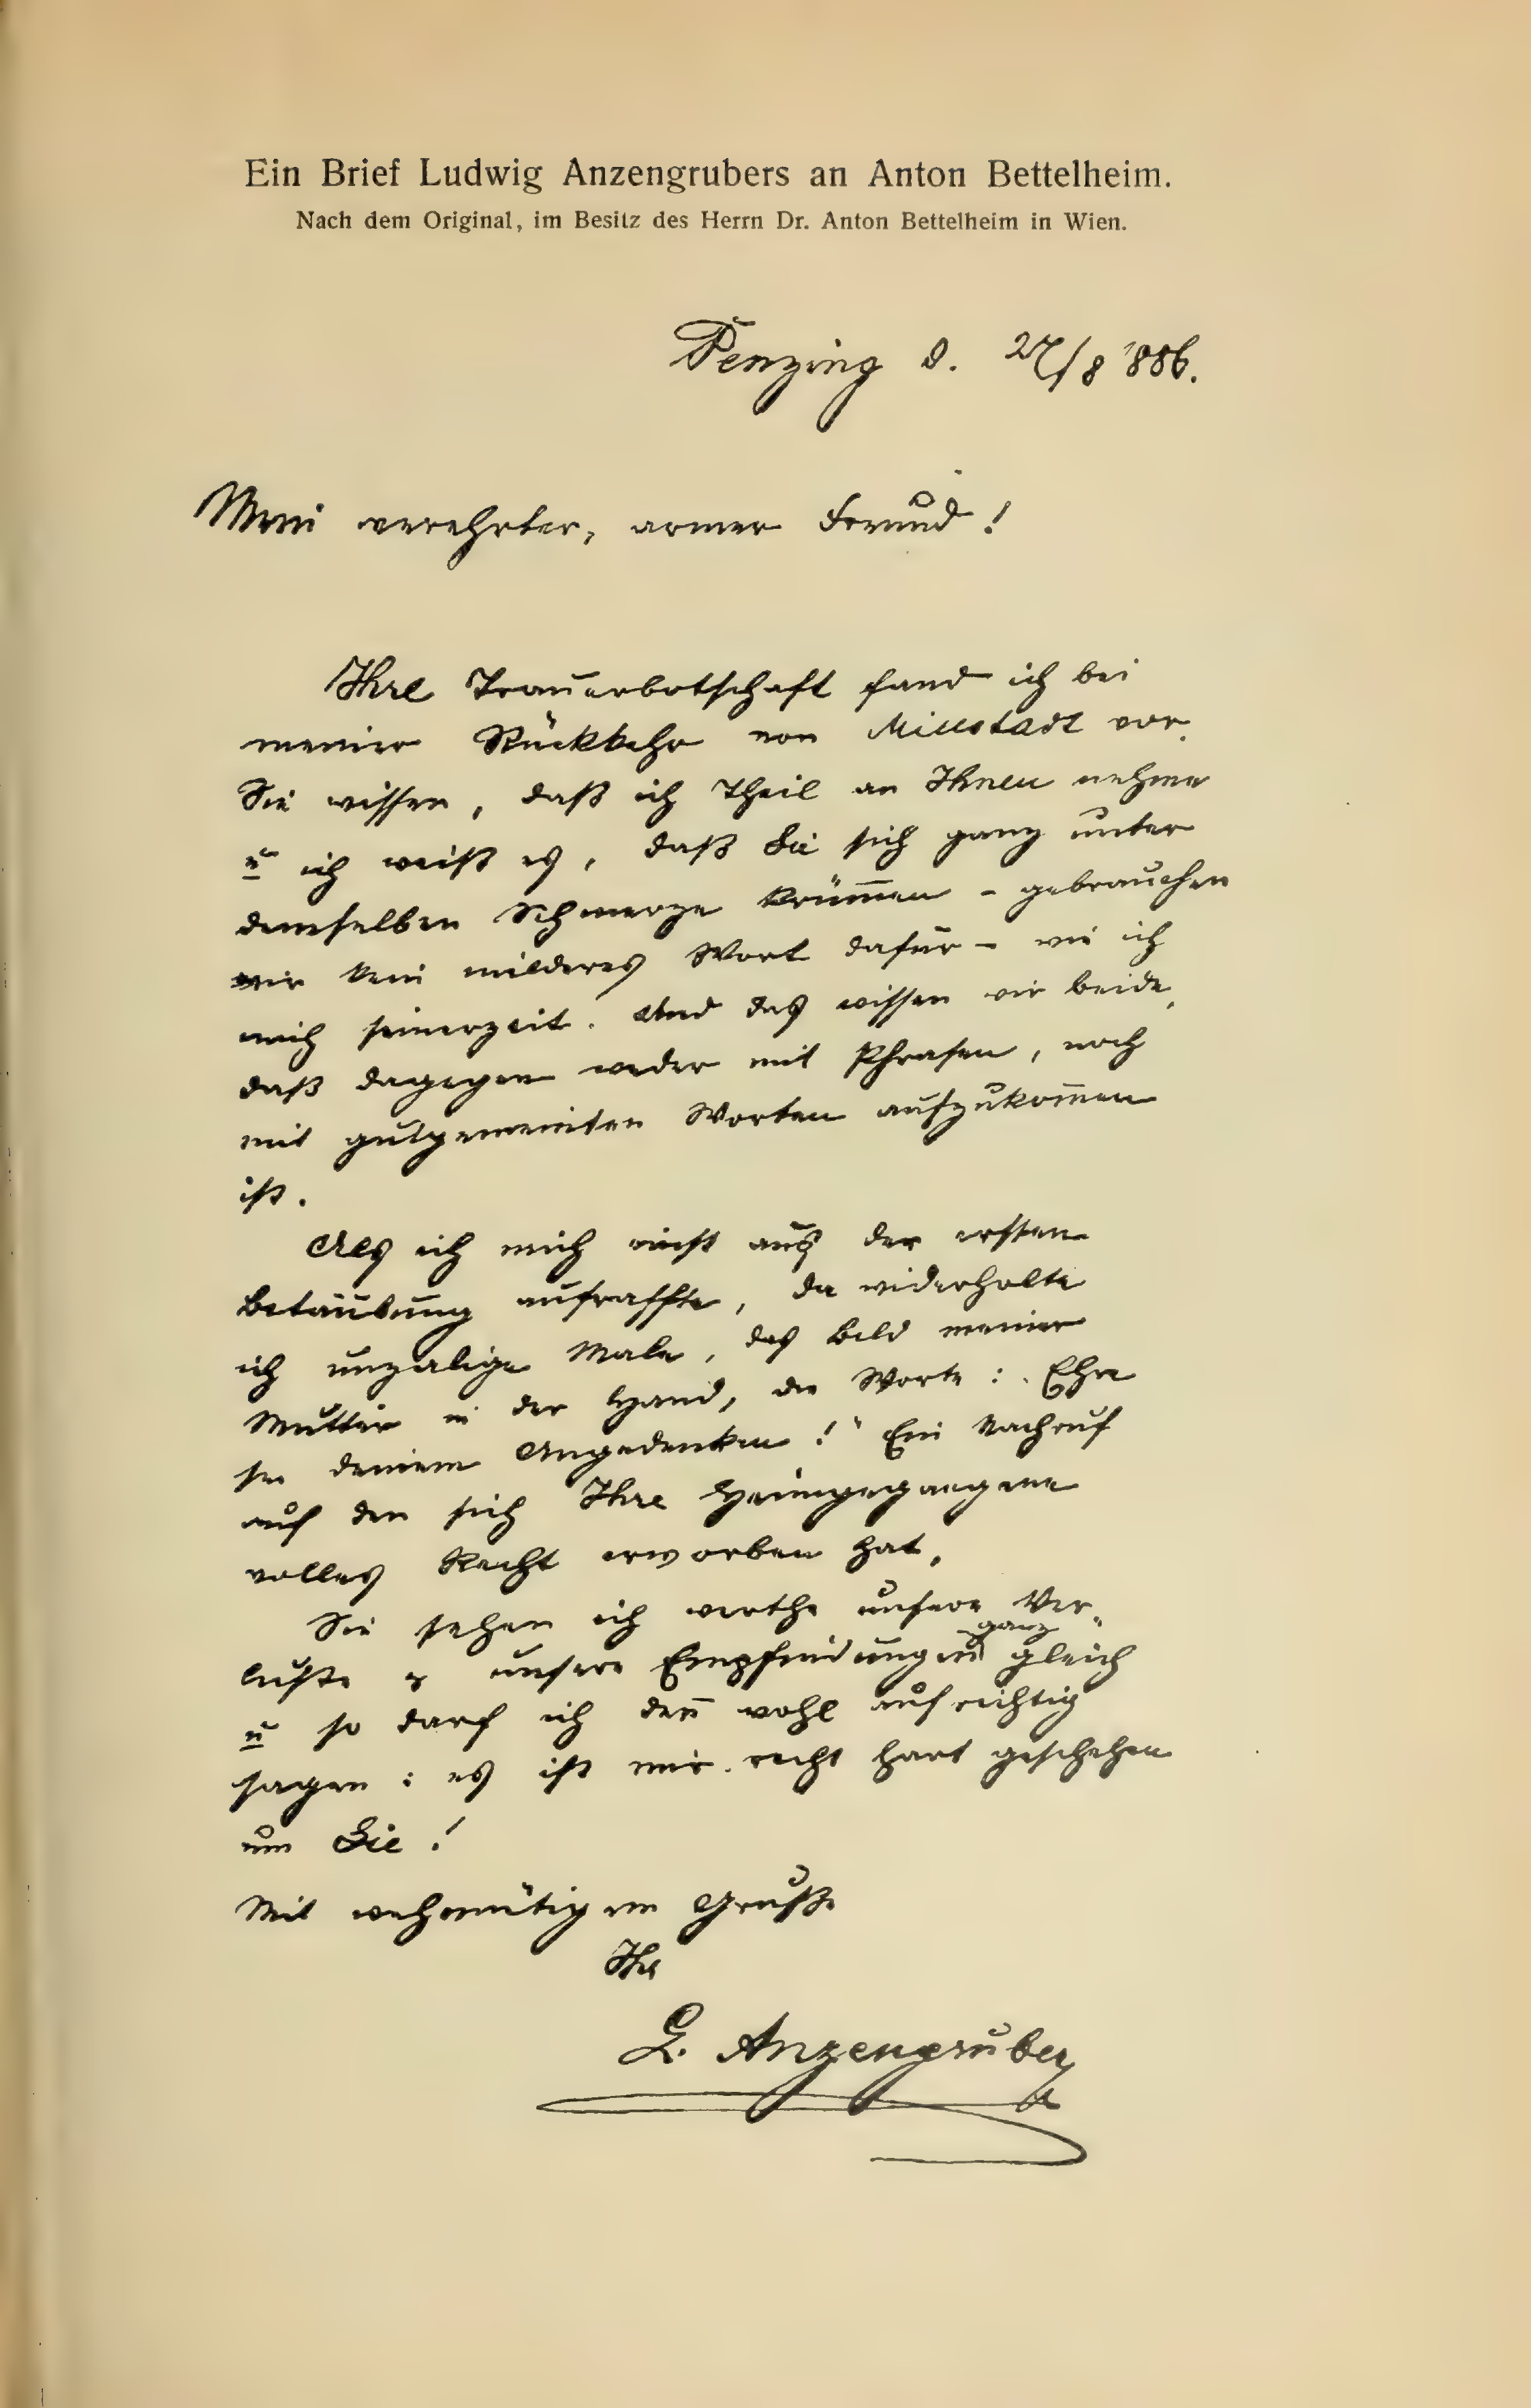 Ein Brief Ludwig Anzengrubers an Anton Bettelheim.
Nach dem Original, im Besitz des Herrn Dr. Anton Bettelheim in Wien.
Penzing d. 27/8 '886.
Mein verehrter, armer Freund!
Ihre Trauerbotschaft fand ich bei
meiner Rückkehr von Millstadt vor.
Sie wissen, daß ich Theil an Ihnen nehme
u ich weiß es, daß Sie sich ganz unter
demselben Schmerze krüm̅en - gebrauchen
wir kein milderes Wort dafür - wie ich
mich seinerzeit. Und das wissen wir beide,
daß dagegen weder mit Phrasen, noch
mit gutgemeinten Worten aufzukom̅en
ist.
Als ich mich einst aus der ersten
Betäubung aufraffte, da widerholte
ich unzälige Male, das Bild meiner
Mutter in der Hand, die Worte: „Ehre
sei deinem Angedenken!" Ein Nachruf
auf den sich Ihre Heimgegangene
volles Recht erworben hat.
Sie sehen ich werthe unsere Ver-
luste & unsere Empfindungen ganz gleich
u so darf ich den̅ wohl aufrichtig
sagen: es ist mir recht hart geschehen
um Sie!
Mit wehmütigem Gruße
Ihr
L. Anzengruber